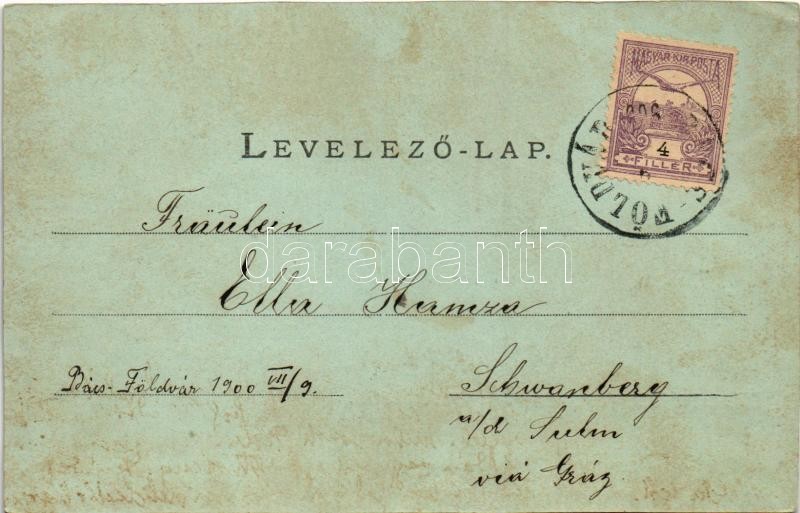 MAGYAR KIR. POSTA
4
FILLÉR
FÖLDVÁR
LEVELEZŐ-LAP.
Fräulein
darabanth
Ella Hamza
Bács-Földvár 1900 VII/9.
Schwanberg
a/d Sulm
viá Gráz